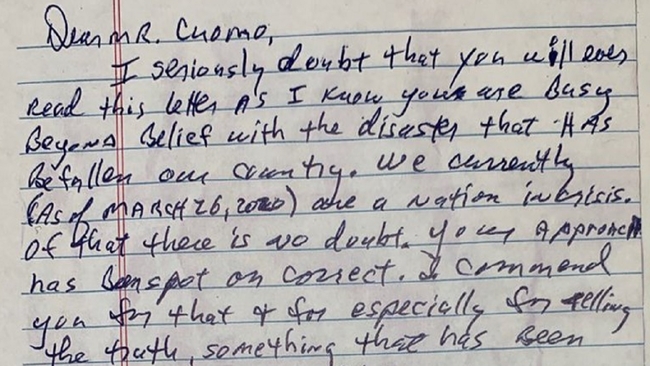 Dear MR. Cuomo,
I seriously doubt that you will ever
Read this letter As I know you are Busy
Beyond Belief with the disaster that HAS
Befallen our country. We currently
(As of MARCH 26, 2020) are a Nation in crisis.
of that there is no doubt. your Approach
has Been spot on correct. I commend
you for that & for especially for telling
the truth, something that has Been